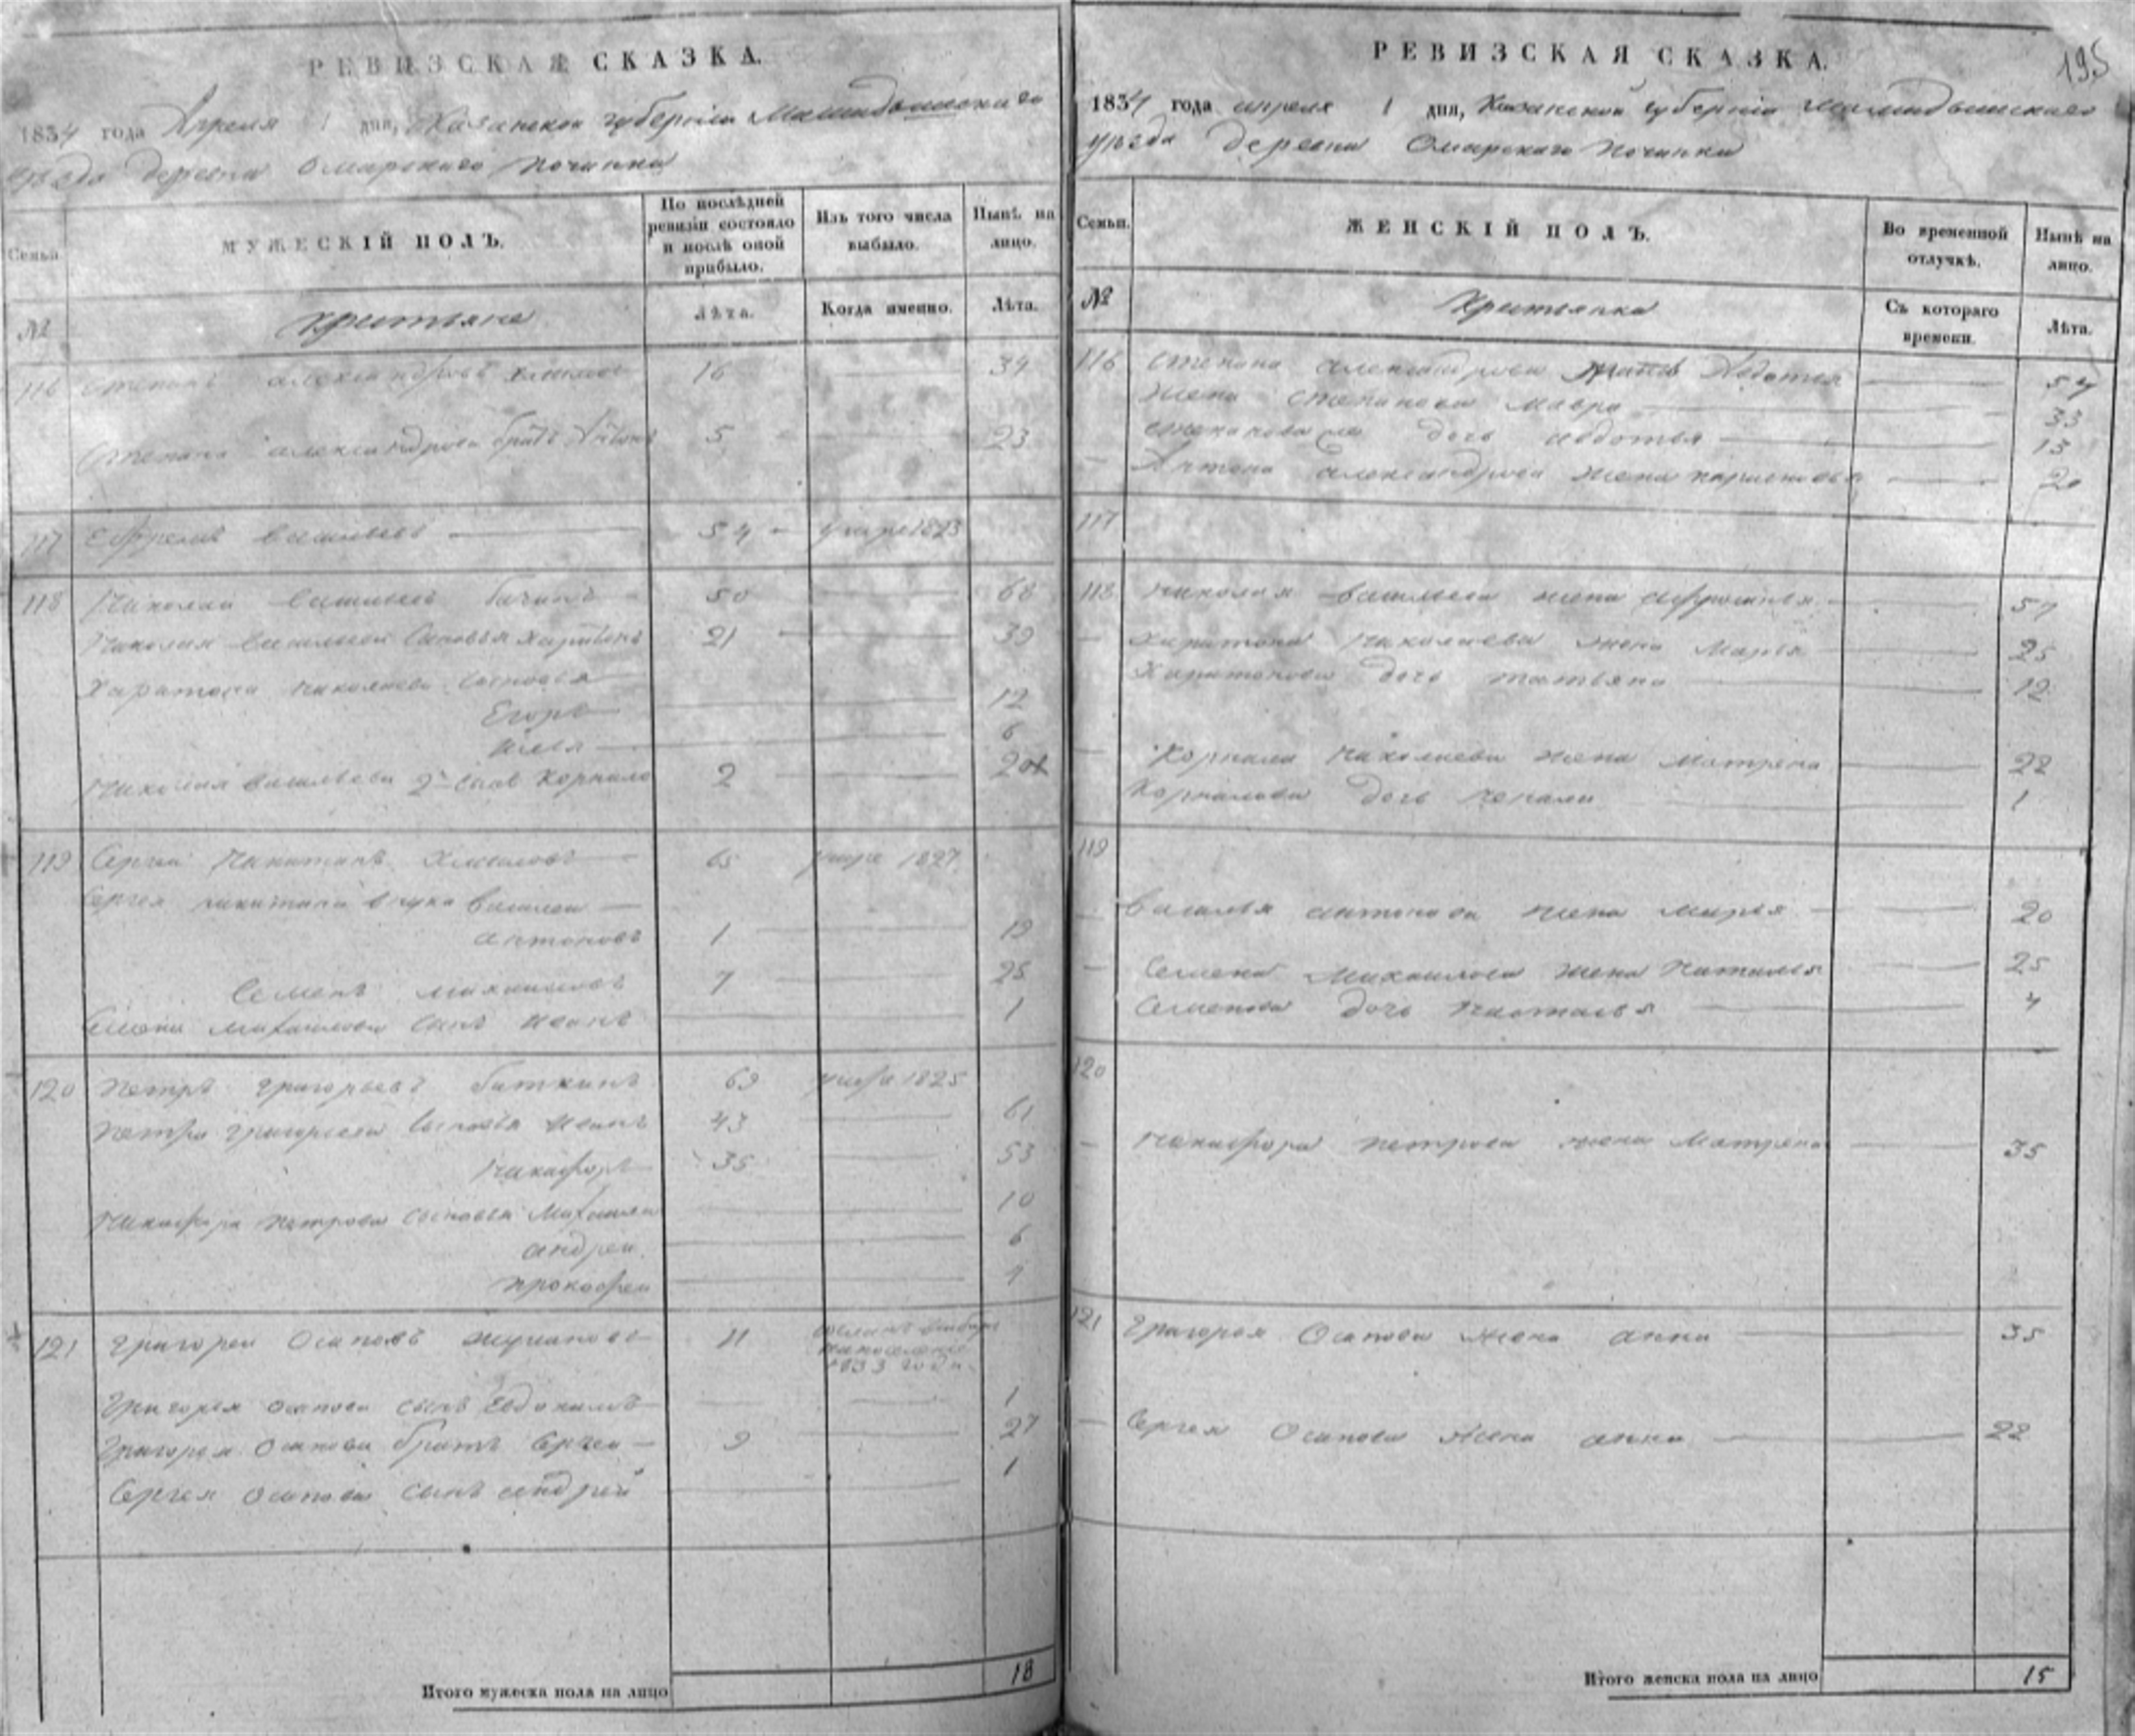 РЕВИЗСКАЯ СКАЗКА.
1834 года Апреля 1 дня, Казанской губернии Мамадышскаго
уезда деревни Омарскаго починка
Семьи
МУЖЕСКІЙ ПОЛЪ.
По послѣдней ревизіи состояло и послѣ оной прибыло.
Изъ того числа выбыло.
Нынѣ на лицо.
№
крестьяне
Лѣта.
Когда именно.
Лѣта.
116 Степанъ александровъ 16 34
Степана александрова братъ Антонъ 5 23
117 Ефремъ васильевъ 54 умре 1823
118 Николай васильевъ бачинъ 50 68
Николая васильева сыновья харитонъ 21 39
Харитона николаева сыновья
Егоръ 12
илья 6
Николая васильева 2й сынъ Корнило 2 20
119 Сергей Никитинъ 65 умре 1827
Сергея никитина внуки василей
антоновъ 1 19
Семенъ михайловъ 7 25
Семена михайлова сынъ иванъ 1
120 Петръ григорьевъ баткинъ 69 умре 1825
Петра григорьева сыновья иванъ 43 61
Никифоръ 35 53
Никифора петрова сыновья Михайла 10
андрей 6
прокофей
121 Григорей Осиповъ 11
1833 года
Григорья осипова сынъ Евдокимъ 1
Григорья осипова братъ Сергей 9 27
Сергея осипова сынъ андрей 1
Итого мужеска пола на лицо 18
195
РЕВИЗСКАЯ СКАЗКА.
1834 года апреля 1 дня, Казанской губерніи Мамадышскаго
уезда деревни Омарскаго починка
Семьи.
ЖЕНСКІЙ ПОЛЪ.
Во временной отлучкѣ.
Нынѣ на лицо.
№
Крестьянка
Съ котораго времени.
Лѣта.
116 Степана александрова Авдотья 54
жена степанова мавра 33
степанова дочь авдотья 13
Антона александрова жена 20
117
118 Николая васильева жена афросинья 57
Харитона Николаева жена Марья 25
Харитонова дочь татьяна 12
Корнила Николаева жена матрена 22
Корнилова дочь 1
119
василья антонова жена марья 20
Семена Михайлова жена Наталья 25
Семенова дочь настасья 4
120
Никифора петрова жена Матрена 35
121 Григорья Осипова жена анна 35
Сергея Осипова жена анна 22
Итого женска пола на лицо 15